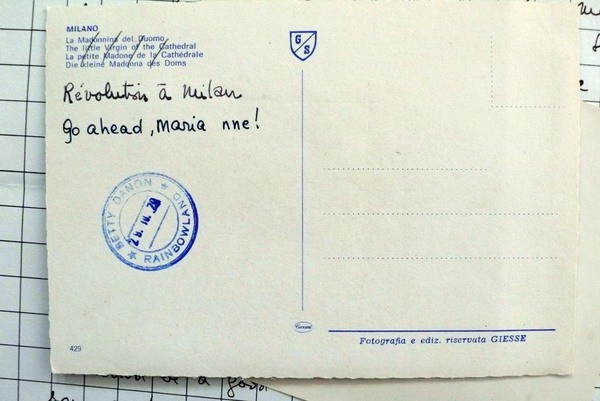 MILANO
La Madonnina del Duomo
The little Virgin of the Cathedral
La petite Madone de la Cathédrale
Die kleine Madonna des Doms
G
S
Révolution à Milan
Go ahead, Maria nne!
BETTY DANON ★ RAINBOWLAND ★
429
Fotografia e ediz. riservata GIESSE